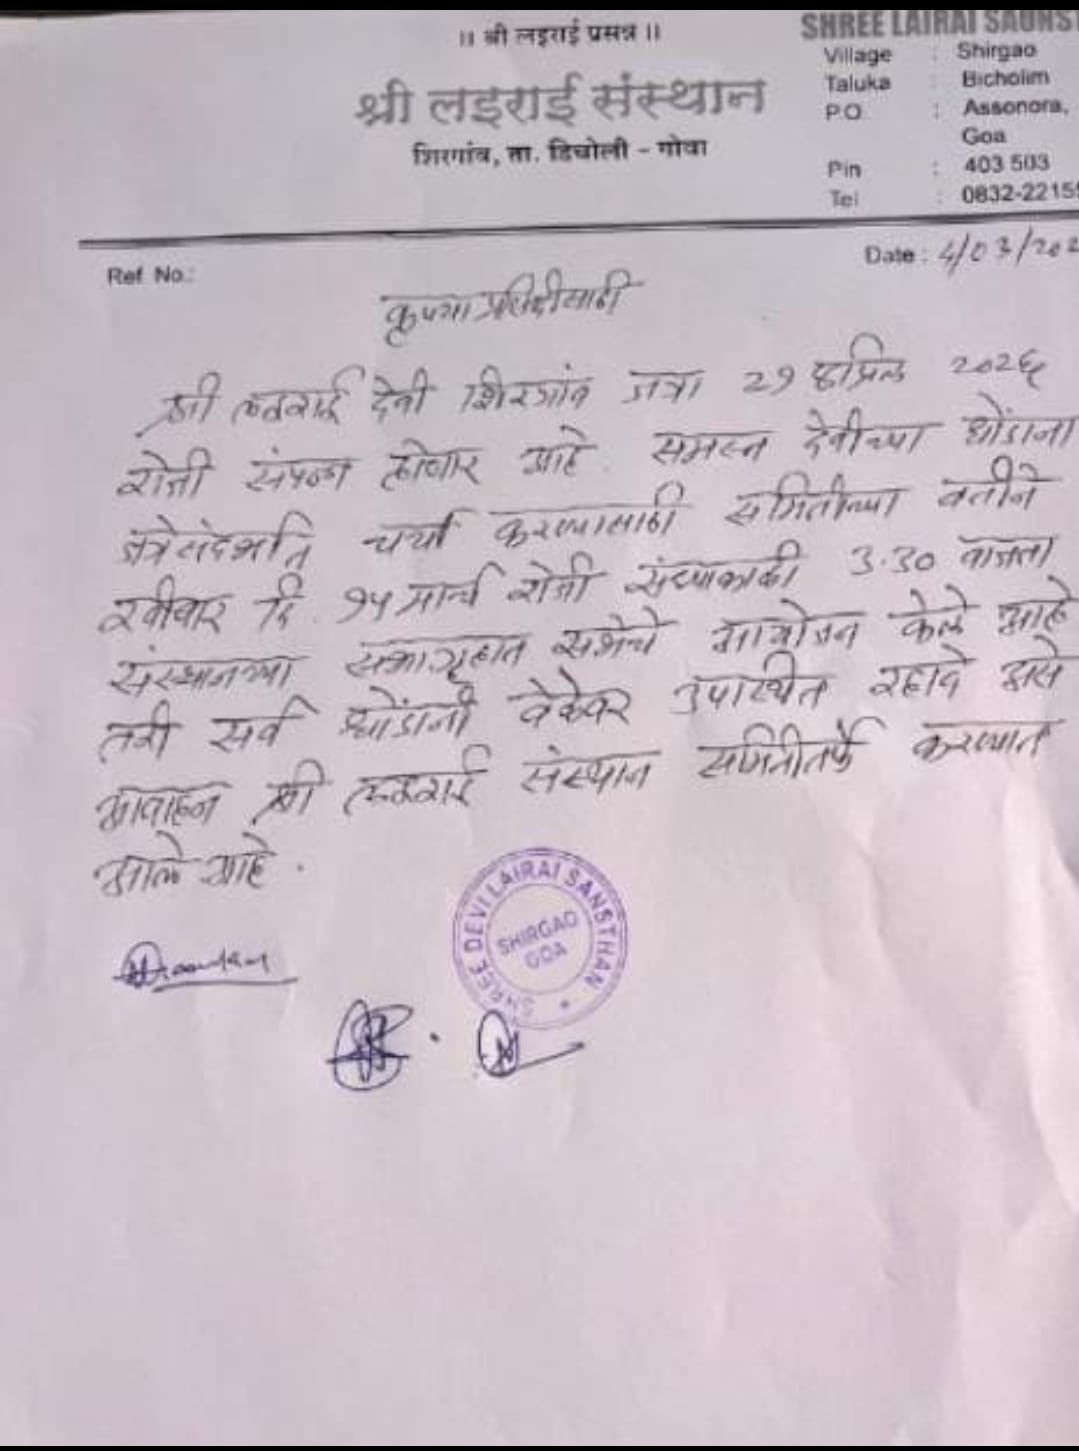 ॥ श्री लइराई प्रसन्न ॥
श्री लइराई संस्थान
शिरगांव, ता. डिचोली - गोवा
SHREE LAIRAI SAUNST
Village : Shirgao
Taluka : Bicholim
P.O. : Assonora,
Goa
Pin : 403 503
Tel : 0832-2215
Ref No.:
Date : 4/03/202
कृपया प्रसिद्धीसाठी
श्री लइराई देवी शिरगांव जत्रा 21 एप्रिल २०२६
रोजी संपन्न होणार आहे. समस्त देवीच्या धोंडाना
जत्रेसंदर्भात चर्चा करण्यासाठी समितीच्या वतीने
रवीवार दि. १५ मार्च रोजी संध्याकाळी 3.30 वाजता
संस्थानच्या सभागृहात सभेचे आयोजन केले आहे
तरी सर्व धोंडानी वेळेवर उपास्थित रहावे असे
आवाहन श्री लइराई संस्थान समितीतर्फे करण्यात
आले आहे.
SHREE DEVI LAIRAI SANSTHAN
SHIRGAO
GOA